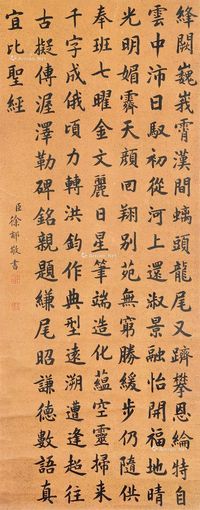 絳闕巍峩霄漢間螭頭龍尾又躋攀恩綸特自
雲中沛日馭初從河上還淑景融怡開福地晴
光明媚霽天顏回翔別苑無窮勝緩步仍隨供
奉班七曜金文麗日星筆端造化蘊空靈掃來
千字成俄頃力轉洪鈞作典型遠溯遭逢超往
古擬傳渥澤勒碑銘親題縑尾昭謙德數語真
宜比聖經
臣徐郙敬書